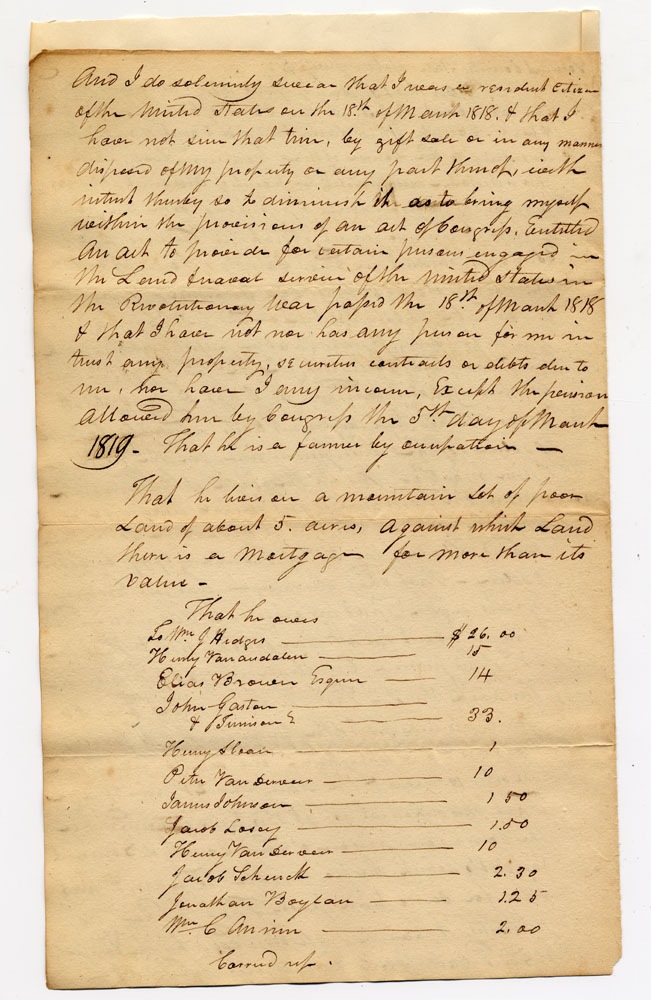 And I do solemnly swear that I was a resident citizen
of the United States on the 18.th of March 1818. & that I
have not since that time, by gift sale or in any manner
disposed of my property or any part thereof, with
intent thereby so to diminish it as to bring myself
within the provisions of an act of Congress, Entitled
An act to provide for certain persons engaged in
the Land & naval service of the United States in
the Revolutionary War passed the 18.th of March 1818
& that I have not nor has any person for me in
trust any property, securities contracts or debts due to
me, nor have I any income, Except the pension
allowed him by Congress the 5th day of March
1819 - That he is a farmer by occupation —
That he lives on a mountain Lot of poor
Land of about 5. acres, against which Land
there is a Mortgage for more than its
value -
That he owes
To Wm J Hedges $ 26.00
Henry Vanarsdalen 15
Elias Brown Esqur 14
John Gaston
& 33.
Henry Sloan 1
Peter Van Derveer 10
James Johnson 1 50
Jacob Losey 1.50
Henry Van Derveer 10
Jacob Schenck 2.30
Jonathan Boylan 1.25
Wm C Annin 2.00
Carried up.